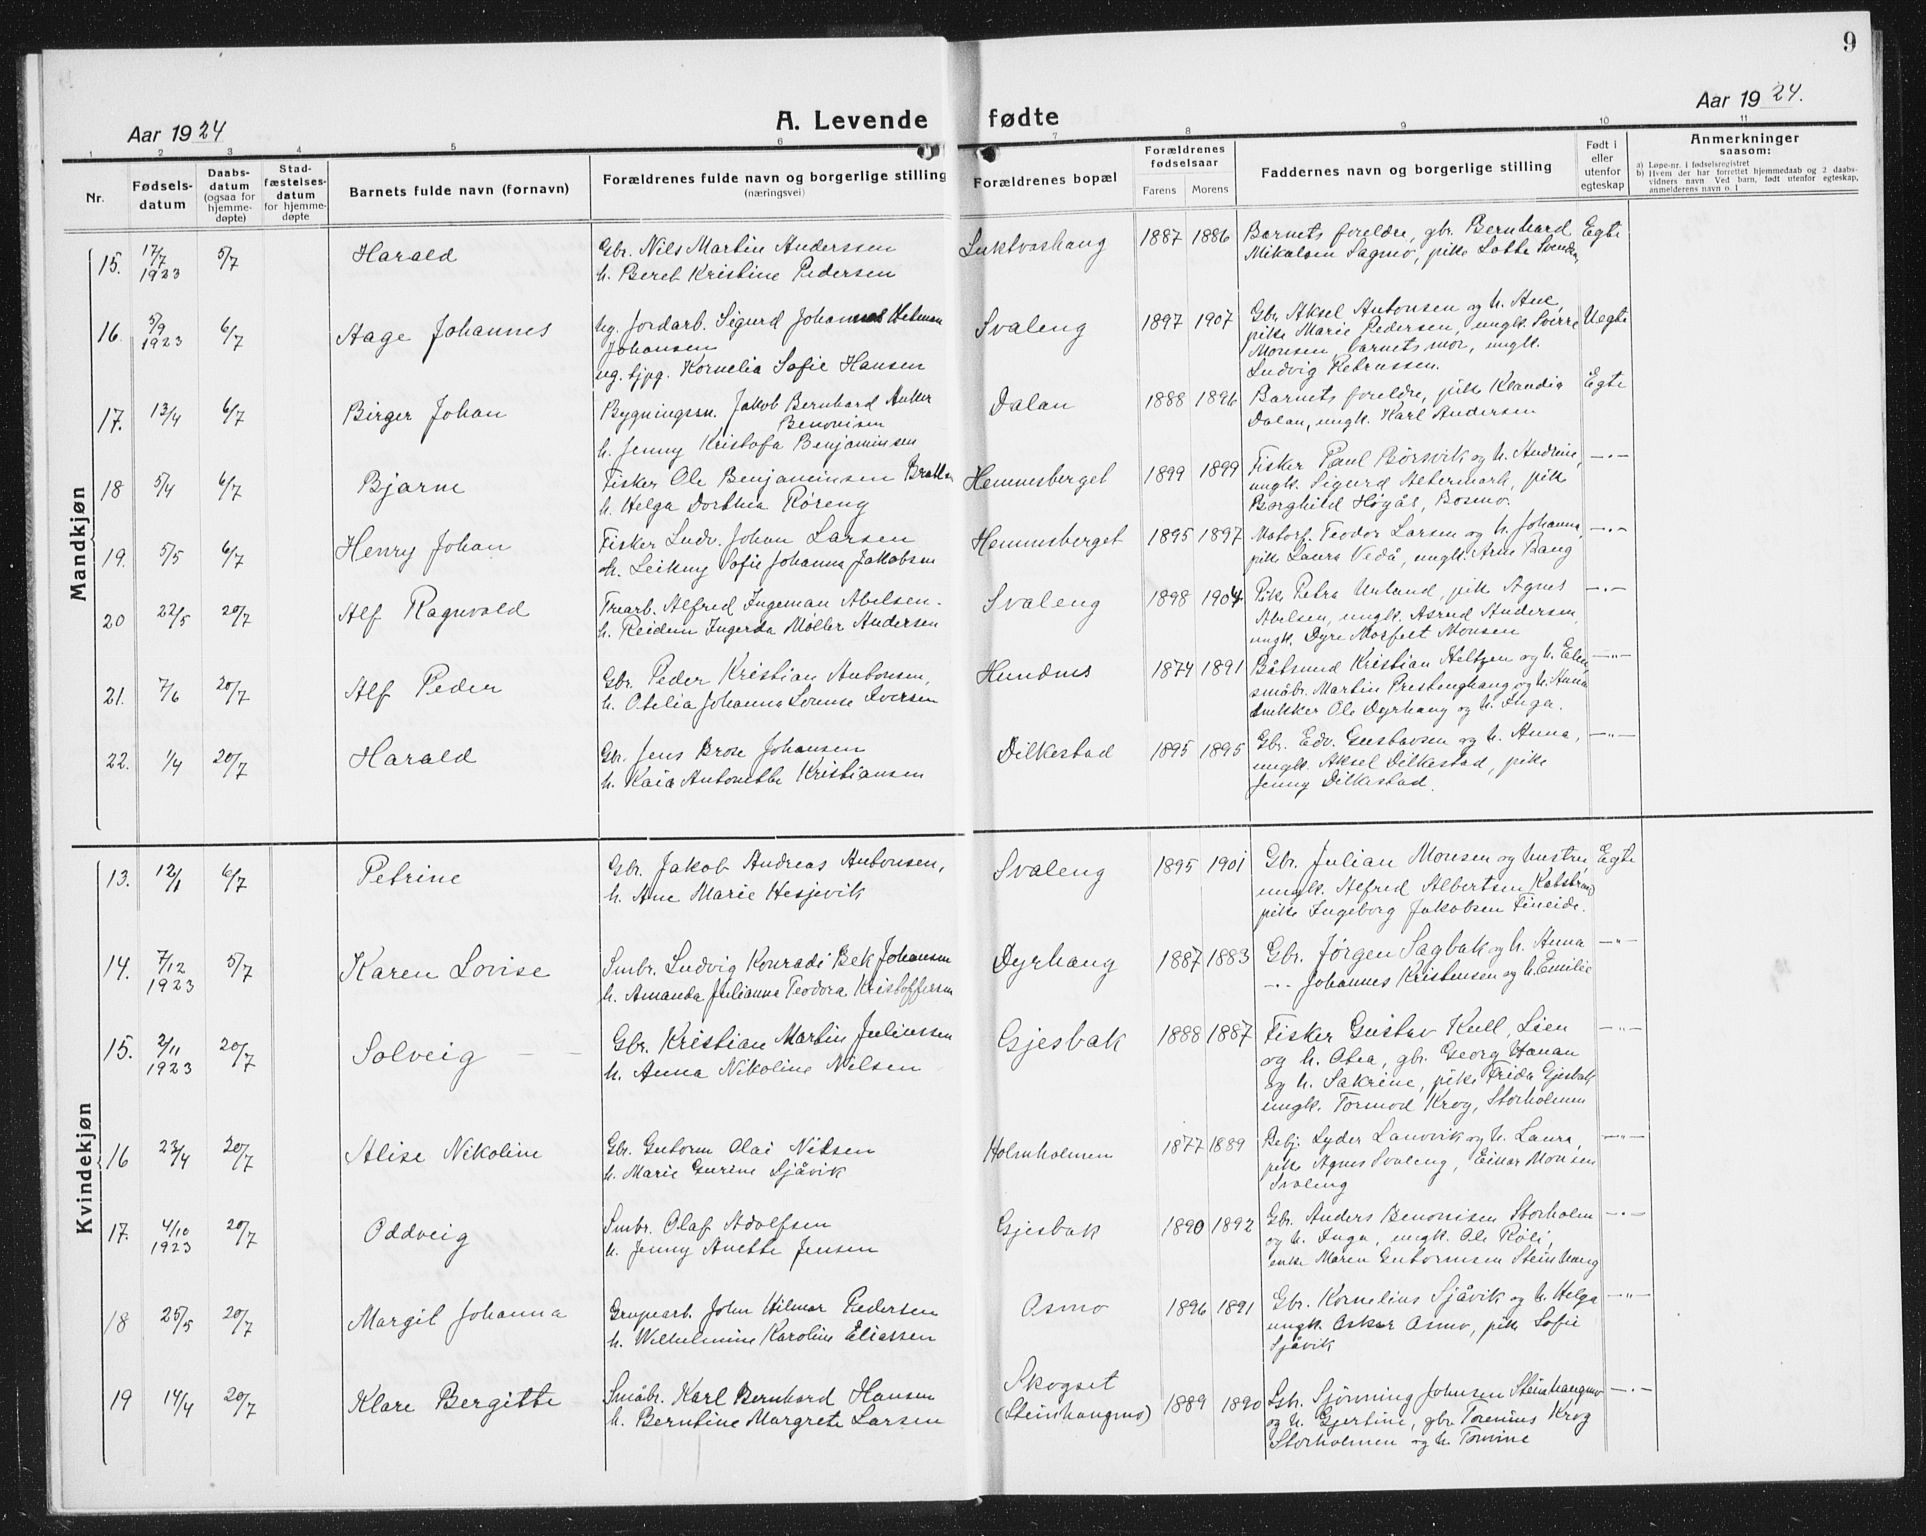 9
Aar 1924
A. Levende fødte
Aar 1924.
1 2 3 4 5 6 7 8 9 10 11
Nr.
Fødsels-
datum
Daabs-
datum
(ogsaa for
hjemme-
døpte)
Stad-
fæstelses-
datum
for hjemme-
døpte
Barnets fulde navn (fornavn)
Forældrenes fulde navn og borgerlige stilling
(næringsvei)
Forældrenes bopæl
Forældrenes
fødselsaar
Farens Morens
Faddernes navn og borgerlige stilling
Født i
eller
utenfor
egteskap
Anmerkninger
saasom:
a) Løpe-nr. i fødselsregistret
b) Hvem der har forrettet hjemmedaab og 2 daabs-
vidners navn Ved barn, født utenfor egteskap,
anmelderens navn o. l
Mandkjøn
15. 17/7 1923 5/7 Harald
Gbr. Nils Martin Anderssen
h. Beret Kristine Pedersen
1887 1886
Barnets foreldre, gbr. Bernhard
Mikalsen Sagmo, pike Lotte
Egte
16. 5/9 1923 6/7 Aage Johannes
ug. Jordarb. Sigurd Johannes
Johansen
ug. tjpg. Kornelia Sofie Hansen
Svaleng
1897 1907
Gbr. Aksel Antonsen og h. Ane,
pike Marie Pedersen, ungk. Sverre
Monsen, barnets mor, ungk.
Ludvig Petrussen.
Uegte
17. 13/4 6/7 Birger Johan
Bygningssn. Jakob Bernhard Anker
Benonisen
h. Jenny Kristofa Benjaminsen
Dalan
1888 1896
Barnets foreldre, pike Klaudia
Dalan, ungk. Karl Andersen
Egte
18 5/4 6/7 Bjarne
Fisker Ole Benjaminsen
h. Helga Dorthea Røreng
Hemnesberget
1899 1899
Fisker Paul Børsvik og h. Andrine,
ungk. Sigurd Altermark, pike
Borghild Høgås, Bosmo.
-"-
19. 5/5 6/7 Henry Johan
Fisker Ludv. Johan Larsen
h. Leikny Sofie Johanna Jakobsen
Hemnesberget
1895 1897
Motorf. Teodor Larsen og h. Johanna,
pike Laura Vedå, ungk. Arne Bang
-"-
20 22/5 20/7 Alf Ragnvald
Trearb. Alfred Ingeman Abelsen.
h. Reidun Ingerda Møller Andersen
Svaleng
1898 1904
Pike Petra Urland, pike Agnes
Abelsen, ungk. Asrud Andersen,
ungk. Dyre Monsen
-"-
21. 7/6 20/7 Alf Peder
Gbr. Peder Kristian Antonsen,
h. Otelia Johanna Lovise Iversen
Hundnes
1874 1891
Båtsmd Kristian Heltzen og h. Elen,
småbr. Martin Prestenghaug og h. Anna
snekker Ole Dyrhaug og h. Inga.
-"-
22. 1/4 20/7 Harald
Gbr. Jens Brose Johansen
h. Kaia Antonette Kristiansen
Dilkestad
1895 1895
Gbr. Edv. Gustavsen og h. Anna,
ungk. Aksel Dilkestad, pike
Jenny Dilkestad.
-"-
Kvindekjøn
13. 12/1 6/7 Petrine
Gbr. Jakob Andreas Antonsen,
h. Ane Marie Hesjevik
Svaleng
1895 1901
Gbr. Julian Monsen og hustru,
ungk. Alfred Albertsen
pike Ingeborg Jakobsen Fineide.
Egte
14. 7/12 1923 5/7 Karen Lovise
Smbr. Ludvig Konradi Bek Johansen
h. Amanda Julianna Teodora Kristoffersen
Dyrhaug
1887 1883
Gbr. Jørgen Sagbak og h. Anna
-"- Johannes Kristensen og h. Emilie
-"-
15. 2/11 1923 20/7 Solveig
Gbr. Kristian Martin Juliussen
h. Anna Nikoline Nilsen
Gjesbak
1888 1887
Fisker Gustav Kull, Lien
og h. Otea, gbr. Georg Hanan
og h. Sakrine, pike Frida Gjesbak
ungk. Tormod Krog, Storholmen
-"-
16 23/4 20/7 Alise Nikoline
Gbr. Gutorm Olai Nilsen
h. Marie Gurine Sjåvik
Holmholmen
1877 1889
Betj. Lyder Lanvik og h. Laura,
pike Agnes Svaleng, Einar Monsen
Svaleng
-"-
17. 4/10 1923 20/7 Oddveig
Smbr. Olaf Adolfsen
h. Jenny Anette Jensen
Gjesbak
1890 1892
Gbr. Anders Benonisen Storholm
og h. Inga, ungk. Ole Røli,
enke Maren Gutormsen Steinhaug
-"-
18 25/5 20/7 Margit Johanna
Grupearb. John Hilmar Pedersen
h. Wilhelmine Karoline Eliassen
Osmo
1896 1891
Gbr. Kornelius Sjåvik og h. Helga
ungk. Oskar Osmo, pike Sofie
Sjåvik
-"-
19 14/4 20/7 Klare Bergitte
Småbr. Karl Bernhard Hansen
h. Berntine Margrete Larsen
Skogset
(Steinhaugmo)
1889 1890
Gbr. Sjønning Johnsen Steinhaugmo
og h. Gjertine, gbr. Torenius Krog
Storholmen og h. Tomine
-"-